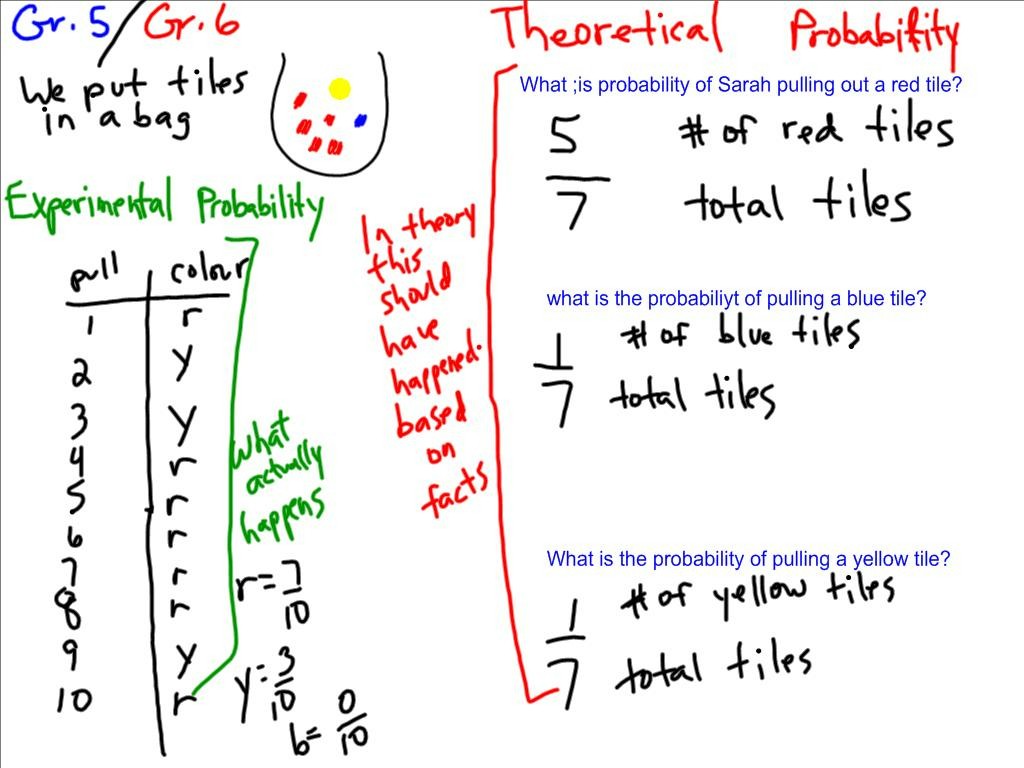 Gr. 5 / Gr. 6
We put tiles
in a bag
Experimental Probability
pull colour
1 r
2 y
3 y
4 r
5 r
6 r
7 r
8 r
9 y
10 r
what
actually
happens
r = 7/10
y = 3/10
b = 0/10
In theory
this
should
have
happened.
based
on
facts
Theoretical Probability
What ;is probability of Sarah pulling out a red tile?
5 # of red tiles
7 total tiles
what is the probabiliyt of pulling a blue tile?
1 # of blue tiles
7 total tiles
What is the probability of pulling a yellow tile?
1 # of yellow tiles
7 total tiles